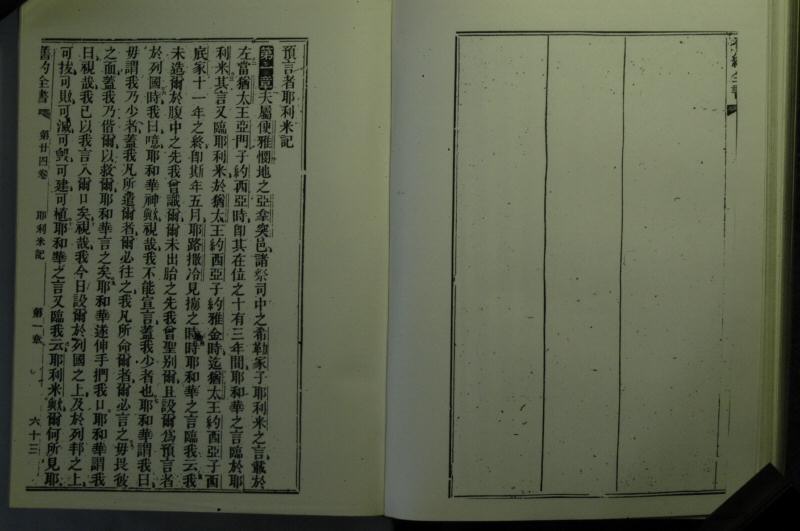 預言者耶利米記
第一章夫屬便雅憫地之亞拿突邑諸祭司中之希勒家子耶利米之言載於
左當猶太王亞門子約西亞時即其在位之十有三年間耶和華之言臨於耶
利米其言又臨耶利米於猶太王約西亞子約雅金時迄猶太王約西亞子西
底家十一年之終即斯年五月耶路撒冷見擄之時時耶和華之言臨我云我
未造爾於腹中之先我曾識爾爾未出胎之先我曾聖別爾且設爾為預言者
於列國時我曰噫耶和華神歟視哉我不能宣言蓋我少者也耶和華謂我曰
毋謂我乃少者蓋我凡所遣爾者爾必往之我凡所命爾者爾必言之毋畏彼
之面蓋我乃偕爾以救爾耶和華言之矣耶和華遂伸手捫我口耶和華謂我
曰視哉我已以我言入爾口矣視哉我今日設爾於列國之上及於列邦之上
可拔可毀可滅可毀可建可植耶和華之言又臨我云耶利米歟爾何所見耶
舊約全書 第廿四卷 耶利米記 第一章 六十三